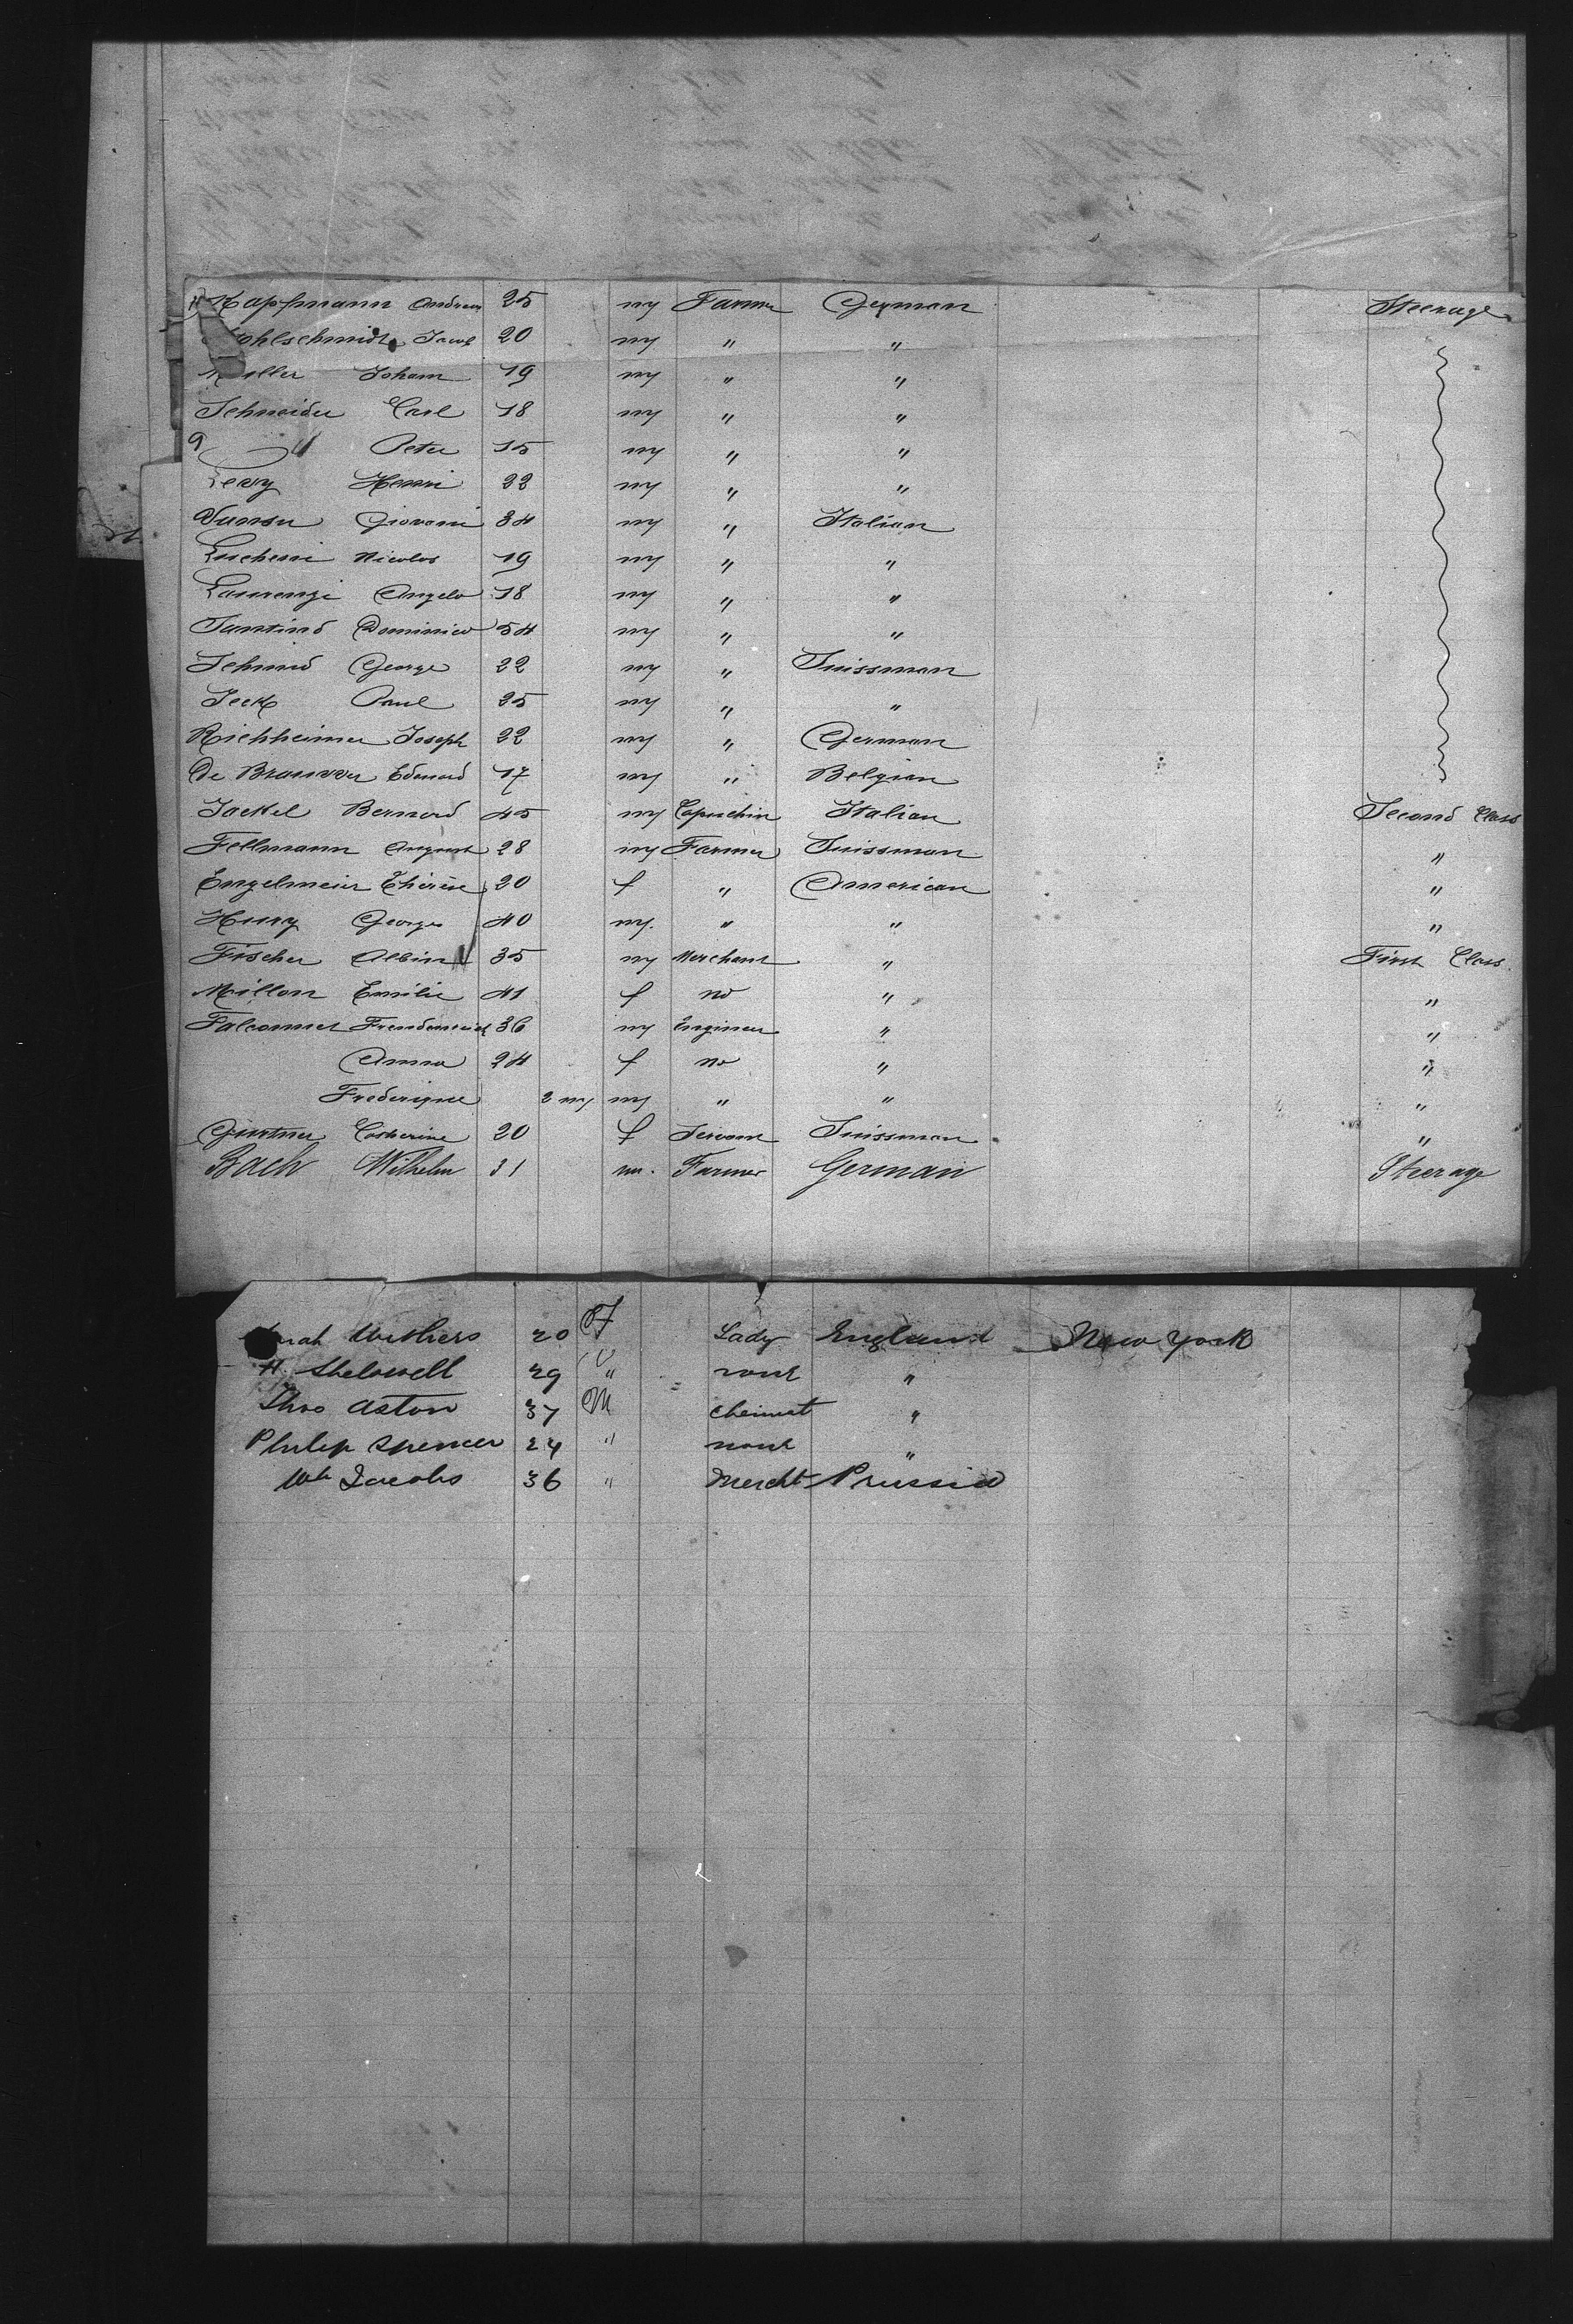 Kapfmann Andreas 25 m Farmer German Steerage
Kohlschmidt Jacob 20 m " "
Müller Johann 19 m " "
Schneider Carl 18 m " "
" Peter 15 m " "
Levy Henri 22 m " "
Giovani 34 m " Italian
Lucheni Nicolas 19 m " "
Laurenzi Angelo 18 m " "
Santino Dominico 54 m " "
Schmid George 22 m " Suissman
Jeck Paul 25 m " "
Richheimer Joseph 22 m " German
De Brauwer Edouard 17 m " Belgian
Jackel Bernard 45 m Capuchin Italian Second Class
Fellmann August 28 m Farmer Suissman "
Engelmeier Thérèse 20 f " American "
Hury Georges 40 m. " " "
Fischer Albin 35 m Merchant " First Class
Millon Emilie 41 f no " "
Falconnet 36 m Engineer " "
Anna 24 f no " "
Frederique 2 m m " " "
Gurtner Catherine 20 f Servant Suissman "
Bach Wilhelm 31 m. Farmer German Steerage
Sarah Withers 20 F Lady England New York
H. Shelowell 29 " none "
Thos Aston 37 M Chemist "
Philip Spencer 24 " none "
Wm Jacobs 36 " Mercht Prussia